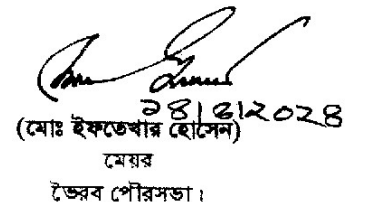 ১৪।৪।২০২৪
(মোঃ ইফতেখার হোসেন)
মেয়র
ভৈরব পৌরসভা।